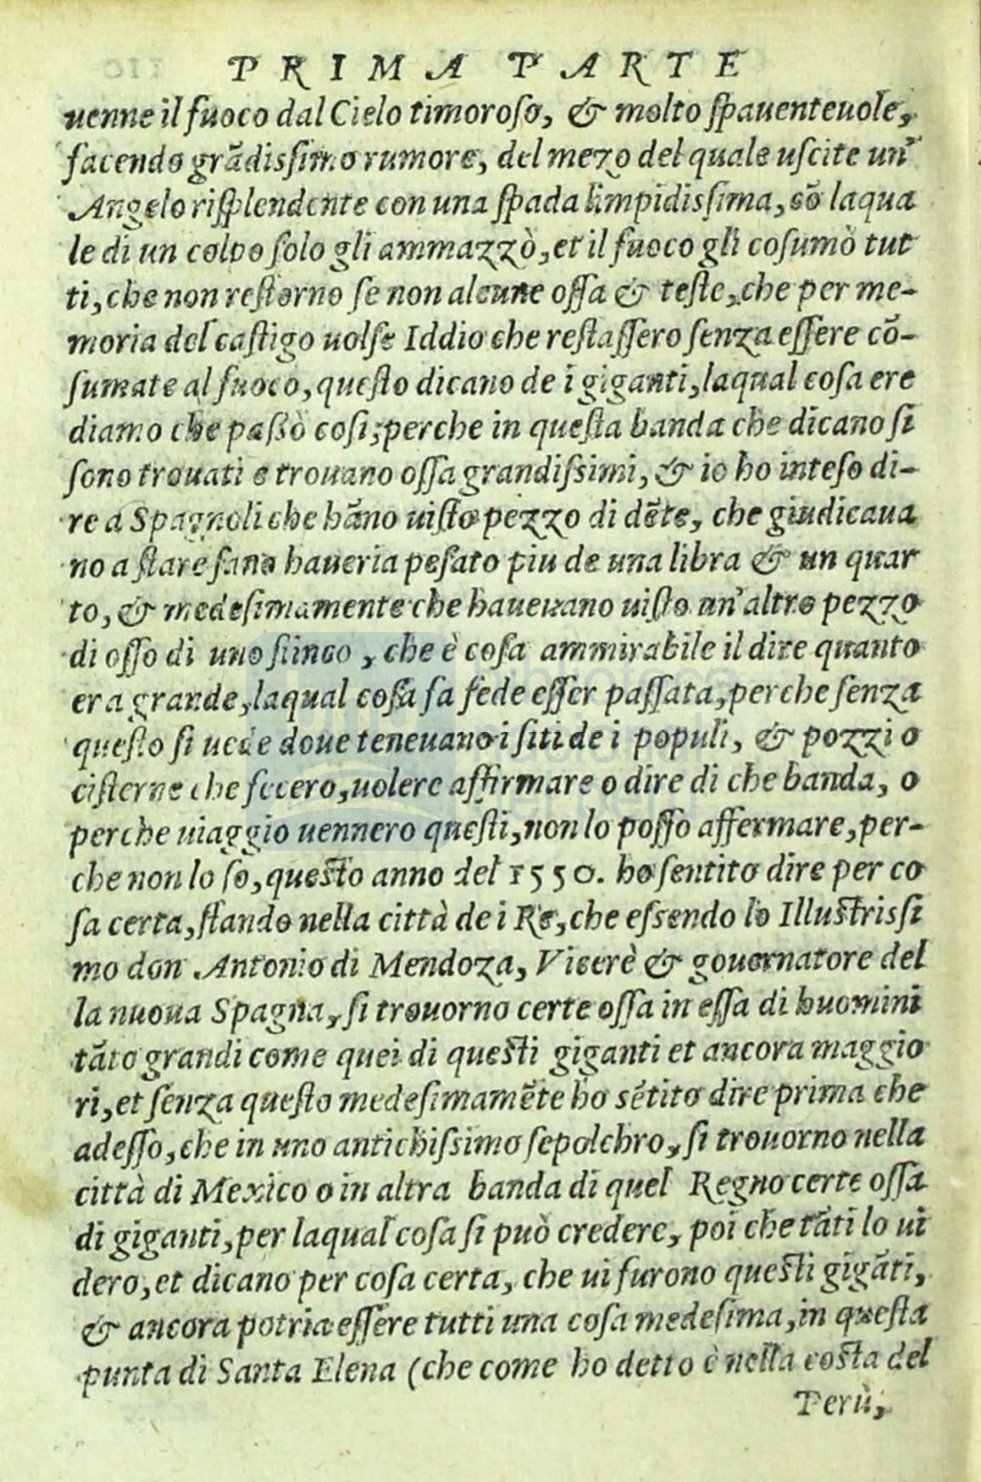 PRIMA PARTE
uenne il fuoco dal Cielo timoroſo, & molto ſpauenteuole,
facendo grãdiſsimo rumore, del mezo del quale uſcite un'
Angelo riſplendente con una ſpada limpidiſsima, cõ laqua
le di un colpo ſolo gli ammazzò, et il fuoco gli coſumò tut
ti, che non reſtorno ſe non alcune oſſa & teſte, che per me-
moria del caſtigo uolſe Iddio che reſtaſſero ſenza eſſere cõ-
ſumate al fuoco, queſto dicano de i giganti, laqual coſa cre
diamo che paſsò coſi; perche in queſta banda che dicano ſi
ſono trouati e trouano oſſa grandiſsimi, & io ho inteſo di-
re a Spagnoli che hãno uiſto pezzo di dẽte, che giudicaua
no a ſtare ſano haueria peſato piu de una libra & un quar
to, & medeſimamente che haueuano uiſto un'altro pezzo
di oſſo di uno ſtinco, che è coſa ammirabile il dire quanto
era grande, laqual coſa fa fede eſſer paſſata, perche ſenza
queſto ſi uede doue teneuano i ſiti de i populi, & pozzi o
ciſterne che fecero, uolere affirmare o dire di che banda, o
perche uiaggio uennero queſti, non lo poſſo affermare, per-
che non lo ſo, queſto anno del 1550. ho ſentito dire per co
ſa certa, ſtando nella città de i Re, che eſsendo lo Illuſtriſsi
mo don Antonio di Mendoza, Vicerè & gouernatore del
la nuoua Spagna, ſi trouorno certe oſſa in eſſa di huomini
tãto grandi come quei di queſti giganti et ancora maggio
ri, et ſenza queſto medeſimamẽte ho sẽtito dire prima che
adeſſo, che in uno antichiſsimo ſepolchro, ſi trouorno nella
città di Mexico o in altra banda di quel Regno certe oſſa
di giganti, per laqual coſa ſi può credere, poi che tãti lo ui
dero, et dicano per coſa certa, che ui furono queſti gigãti,
& ancora potria eſſere tutti una coſa medeſima, in queſta
punta di Santa Elena (che come ho detto è nella coſta del
Perù,